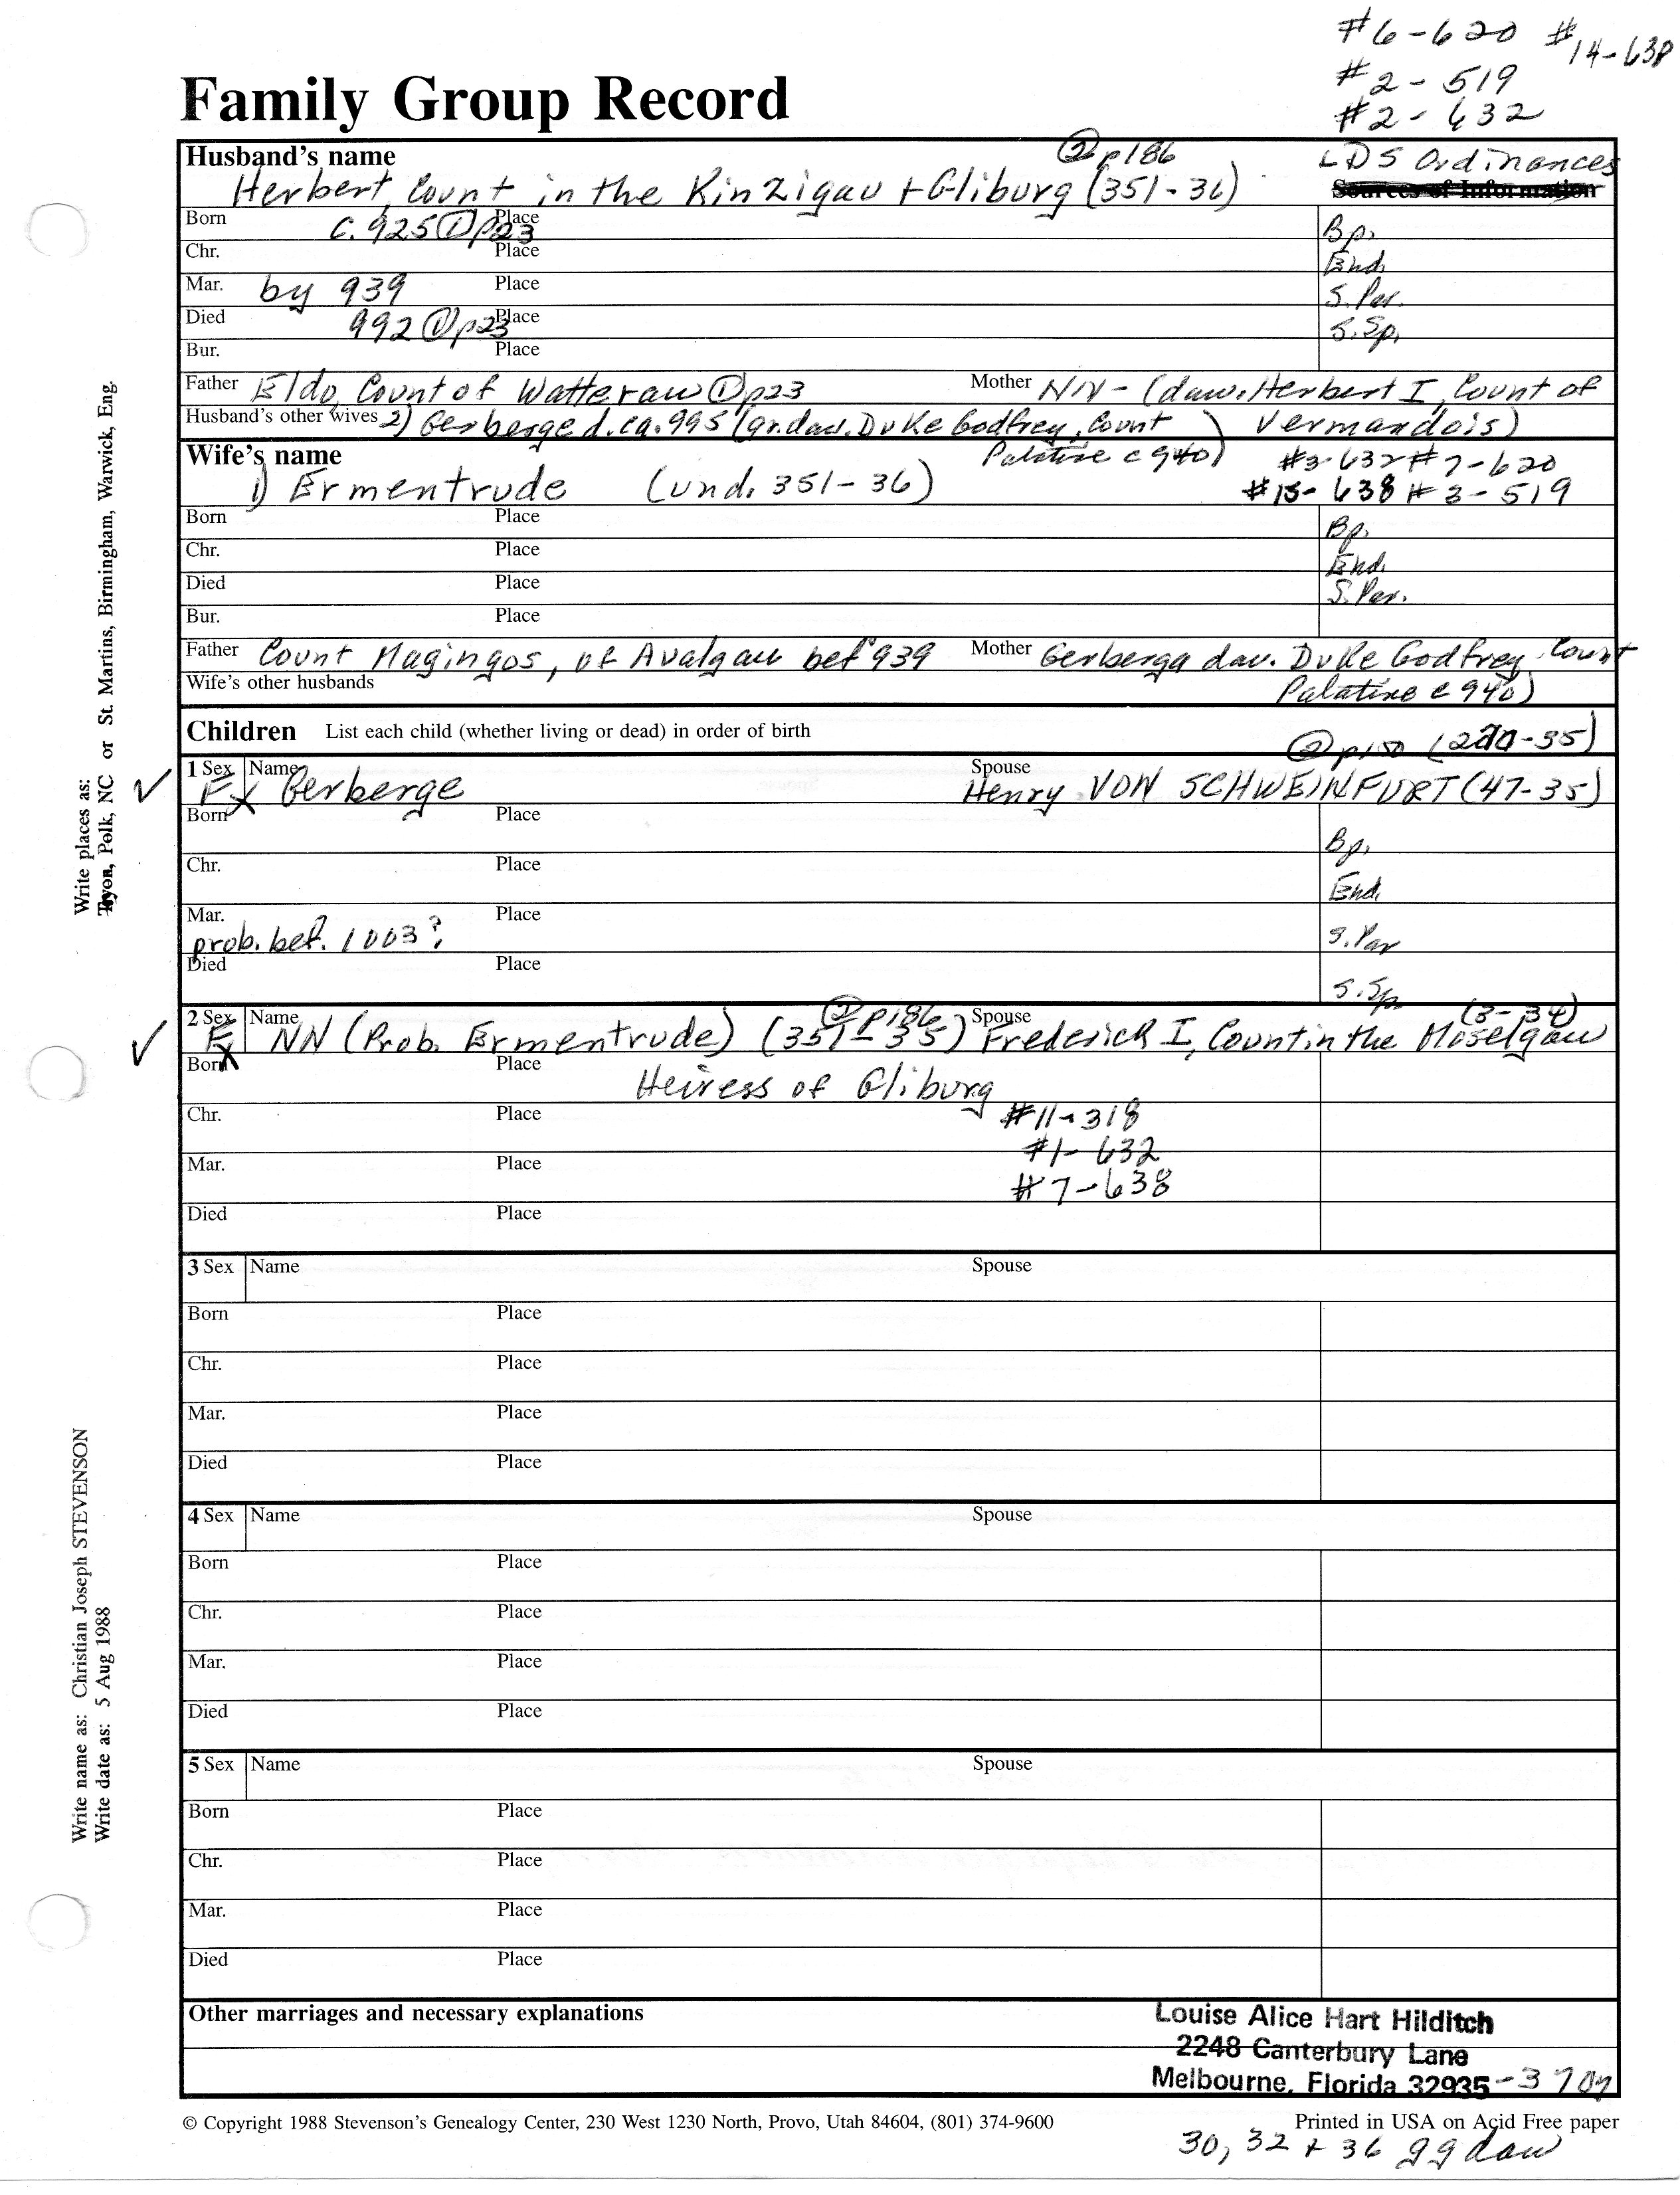 #6-620 #14-638
#2-519
#2-632
Family Group Record
Husband's name ② p186 LDS Ordinances
Herbert, Count in the Kinzigau + Gliburg (351-36) Sources of Information
Born c. 925 ① p23 Place Bp.
Chr. Place End.
Mar. by 939 Place S. Par.
Died 992 ① p23 Place S. Sp.
Bur. Place
Father Eldo, Count of Watterau ① p23 Mother NN - (dau. Herbert I, Count of
Husband's other wives 2) Gerberge d. ca. 995 (gr. dau. Duke Godfrey, Count Vermandois)
Wife's name Palatine c 940) #3-632 #7-620
1) Ermentrude (und. 351-36) #15-638 #3-519
Born Place Bp.
Chr. Place End.
Died Place S. Par.
Bur. Place
Father Count Magingos, of Avalgau bef 939 Mother Gerberga dau. Duke Godfrey, Count
Wife's other husbands Palatine c 940)
Children List each child (whether living or dead) in order of birth ② p150 (270-35)
1 Sex Name Spouse
F X Gerberge Henry VON SCHWEINFURT (47-35)
Born Place Bp.
Chr. Place End.
Mar. Place
prob. bef. 1003? S. Par
Died Place S. Sp.
2 Sex Name ② p186 Spouse (3-34)
F X NN (Prob. Ermentrude) (351-35) Frederick I, Count in the Moselgau
Born Place
Heiress of Gliburg
Chr. Place #11-318
#1-632
Mar. Place
#7-638
Died Place
3 Sex Name Spouse
Born Place
Chr. Place
Mar. Place
Died Place
4 Sex Name Spouse
Born Place
Chr. Place
Mar. Place
Died Place
5 Sex Name Spouse
Born Place
Chr. Place
Mar. Place
Died Place
Other marriages and necessary explanations
Louise Alice Hart Hilditch
2248 Canterbury Lane
Melbourne, Florida 32935-3707
© Copyright 1988 Stevenson's Genealogy Center, 230 West 1230 North, Provo, Utah 84604, (801) 374-9600 Printed in USA on Acid Free paper
30, 32 + 36 ggdau
Write places as:
Tryon, Polk, NC or St. Martins, Birmingham, Warwick, Eng.
Write name as: Christian Joseph STEVENSON
Write date as: 5 Aug 1988